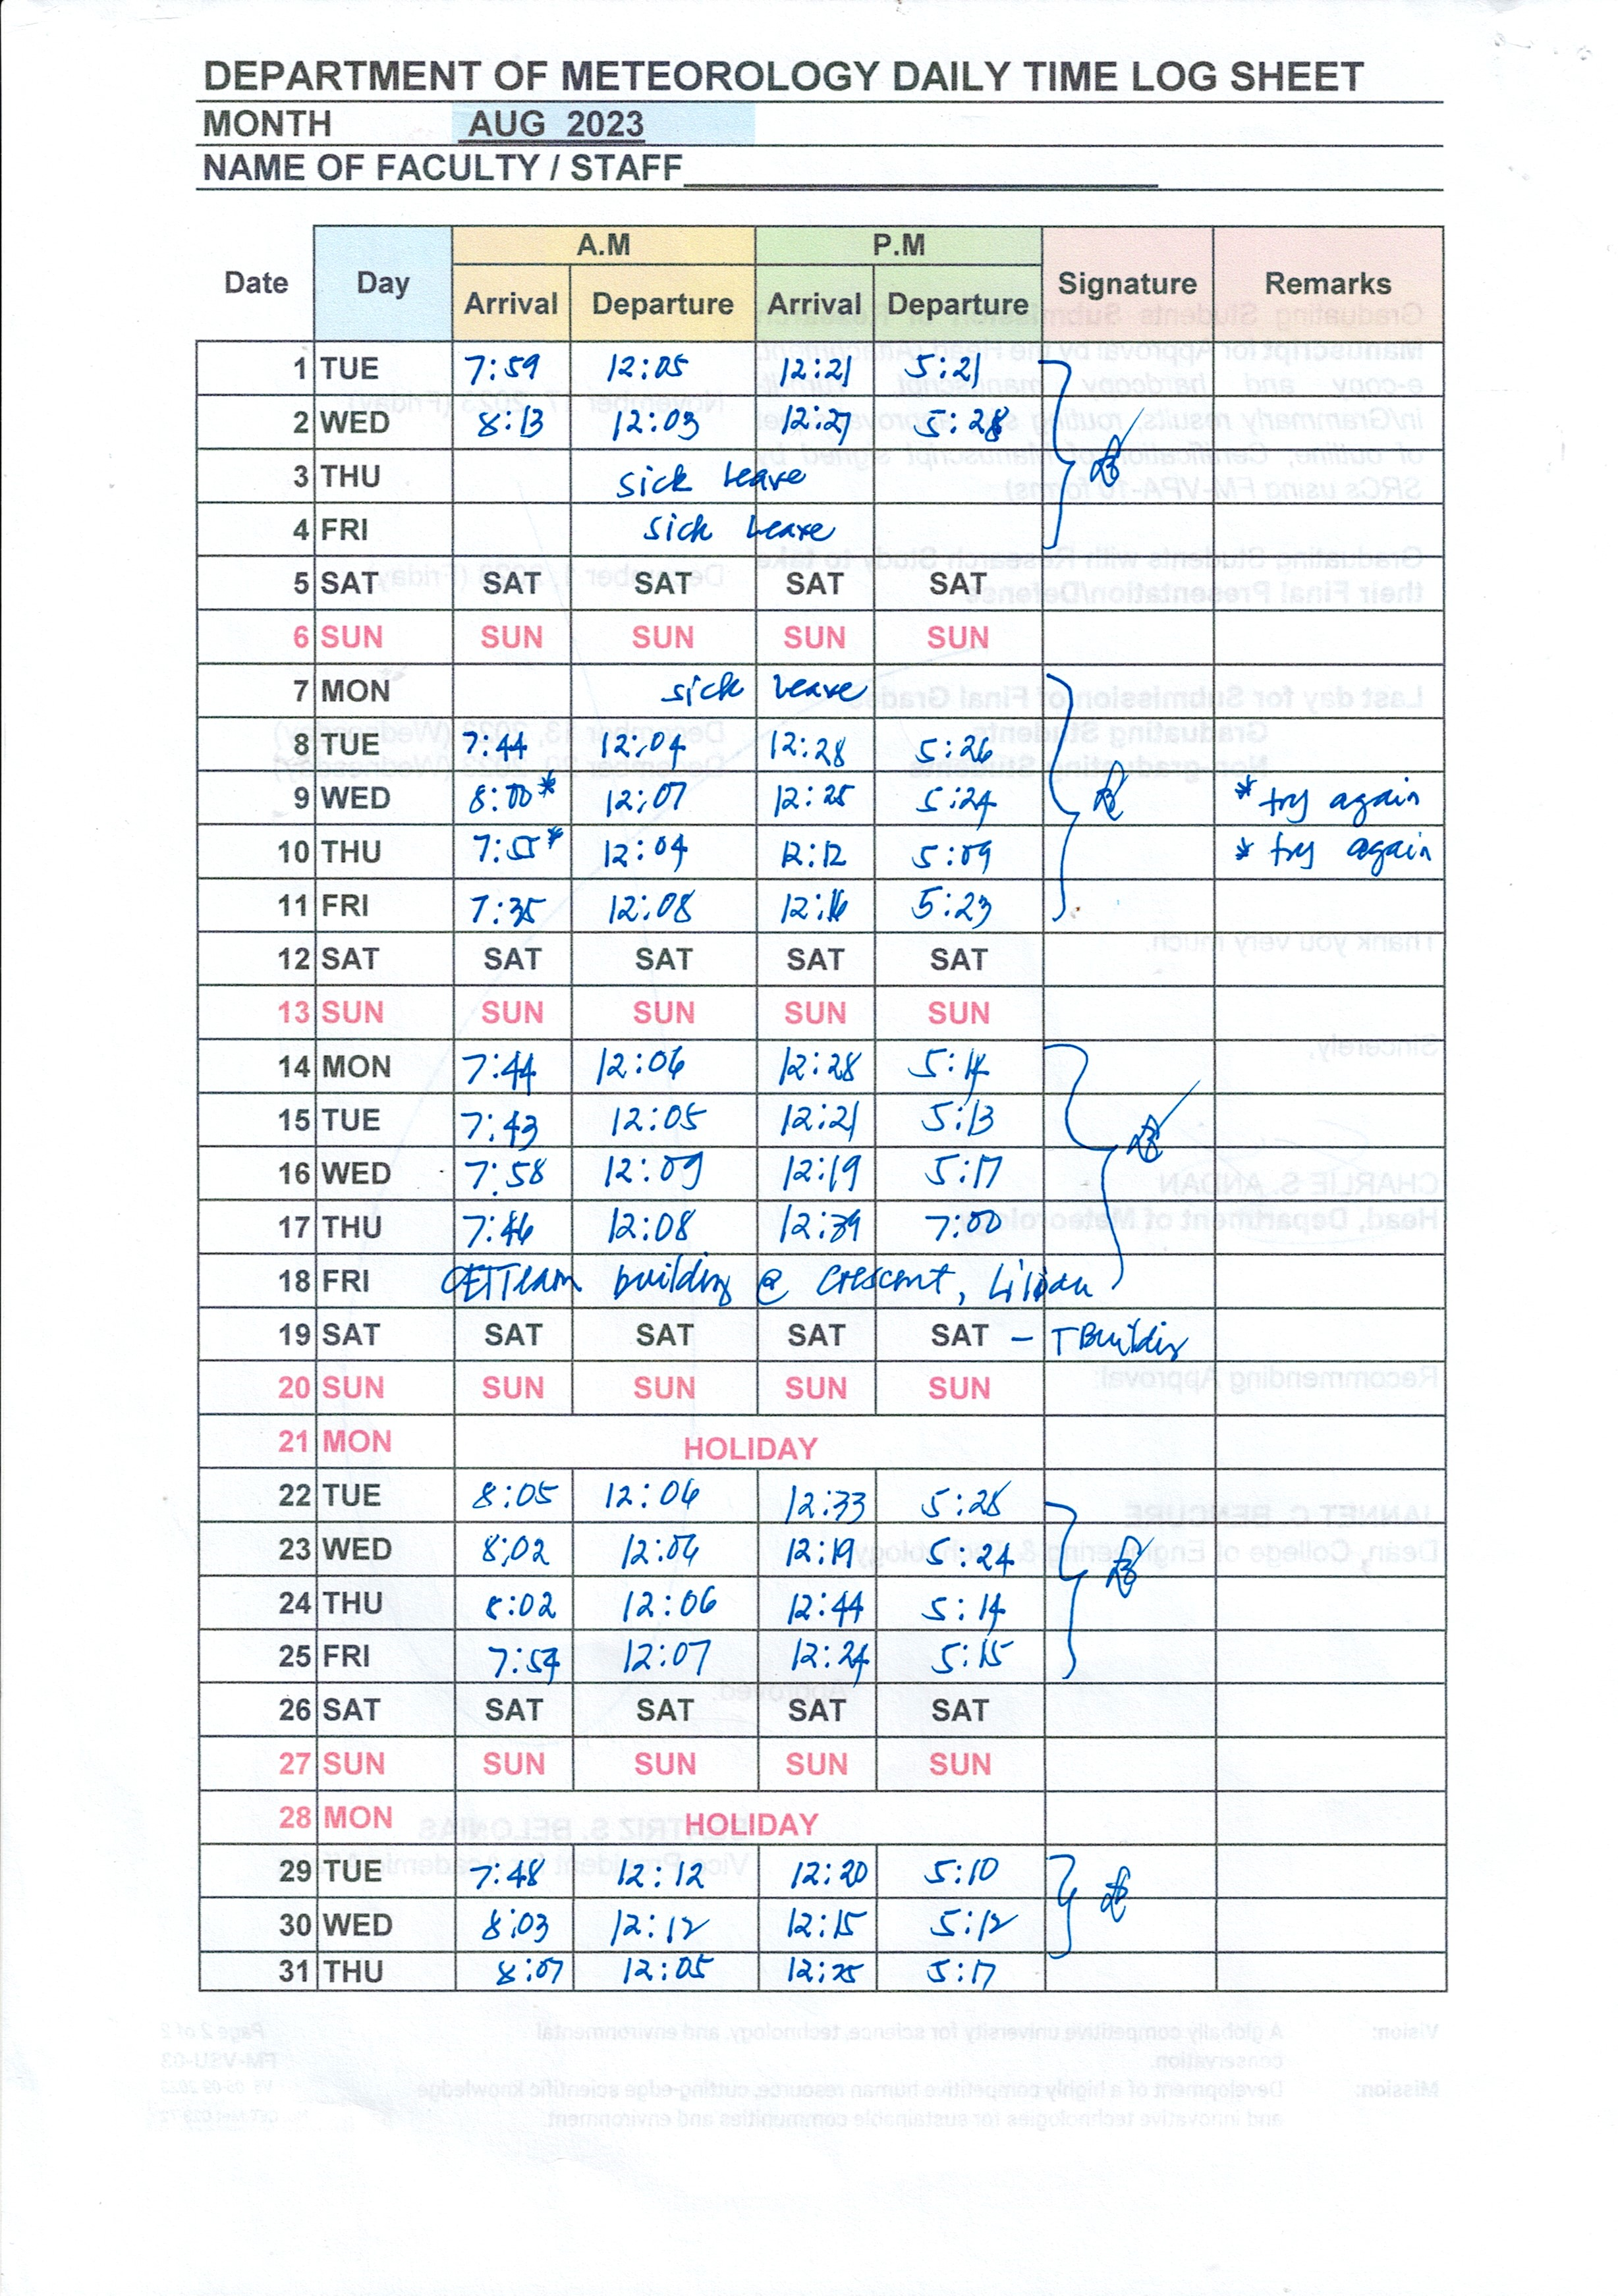 DEPARTMENT OF METEOROLOGY DAILY TIME LOG SHEET
MONTH AUG 2023
NAME OF FACULTY / STAFF
A.M P.M
Date Day Arrival Departure Arrival Departure Signature Remarks
1 TUE 7:59 12:05 12:21 5:21
2 WED 8:13 12:03 12:27 5:28
3 THU sick leave
4 FRI sick leave
5 SAT SAT SAT SAT SAT
6 SUN SUN SUN SUN SUN
7 MON sick leave
8 TUE 7:44 12:04 12:28 5:26
9 WED 8:00* 12:07 12:25 5:24 * try again
10 THU 7:55* 12:04 12:12 5:09 * try again
11 FRI 7:35 12:08 12:16 5:23
12 SAT SAT SAT SAT SAT
13 SUN SUN SUN SUN SUN
14 MON 7:44 12:06 12:28 5:14
15 TUE 7:43 12:05 12:21 5:13
16 WED 7:58 12:09 12:19 5:17
17 THU 7:46 12:08 12:39 7:00
18 FRI CET Team building @ Crescent, Liloan
19 SAT SAT SAT SAT SAT - T Building
20 SUN SUN SUN SUN SUN
21 MON HOLIDAY
22 TUE 8:05 12:06 12:33 5:28
23 WED 8:02 12:06 12:19 5:24
24 THU 8:02 12:06 12:44 5:14
25 FRI 7:54 12:07 12:24 5:15
26 SAT SAT SAT SAT SAT
27 SUN SUN SUN SUN SUN
28 MON HOLIDAY
29 TUE 7:48 12:12 12:20 5:10
30 WED 8:03 12:12 12:15 5:12
31 THU 8:07 12:05 12:25 5:17